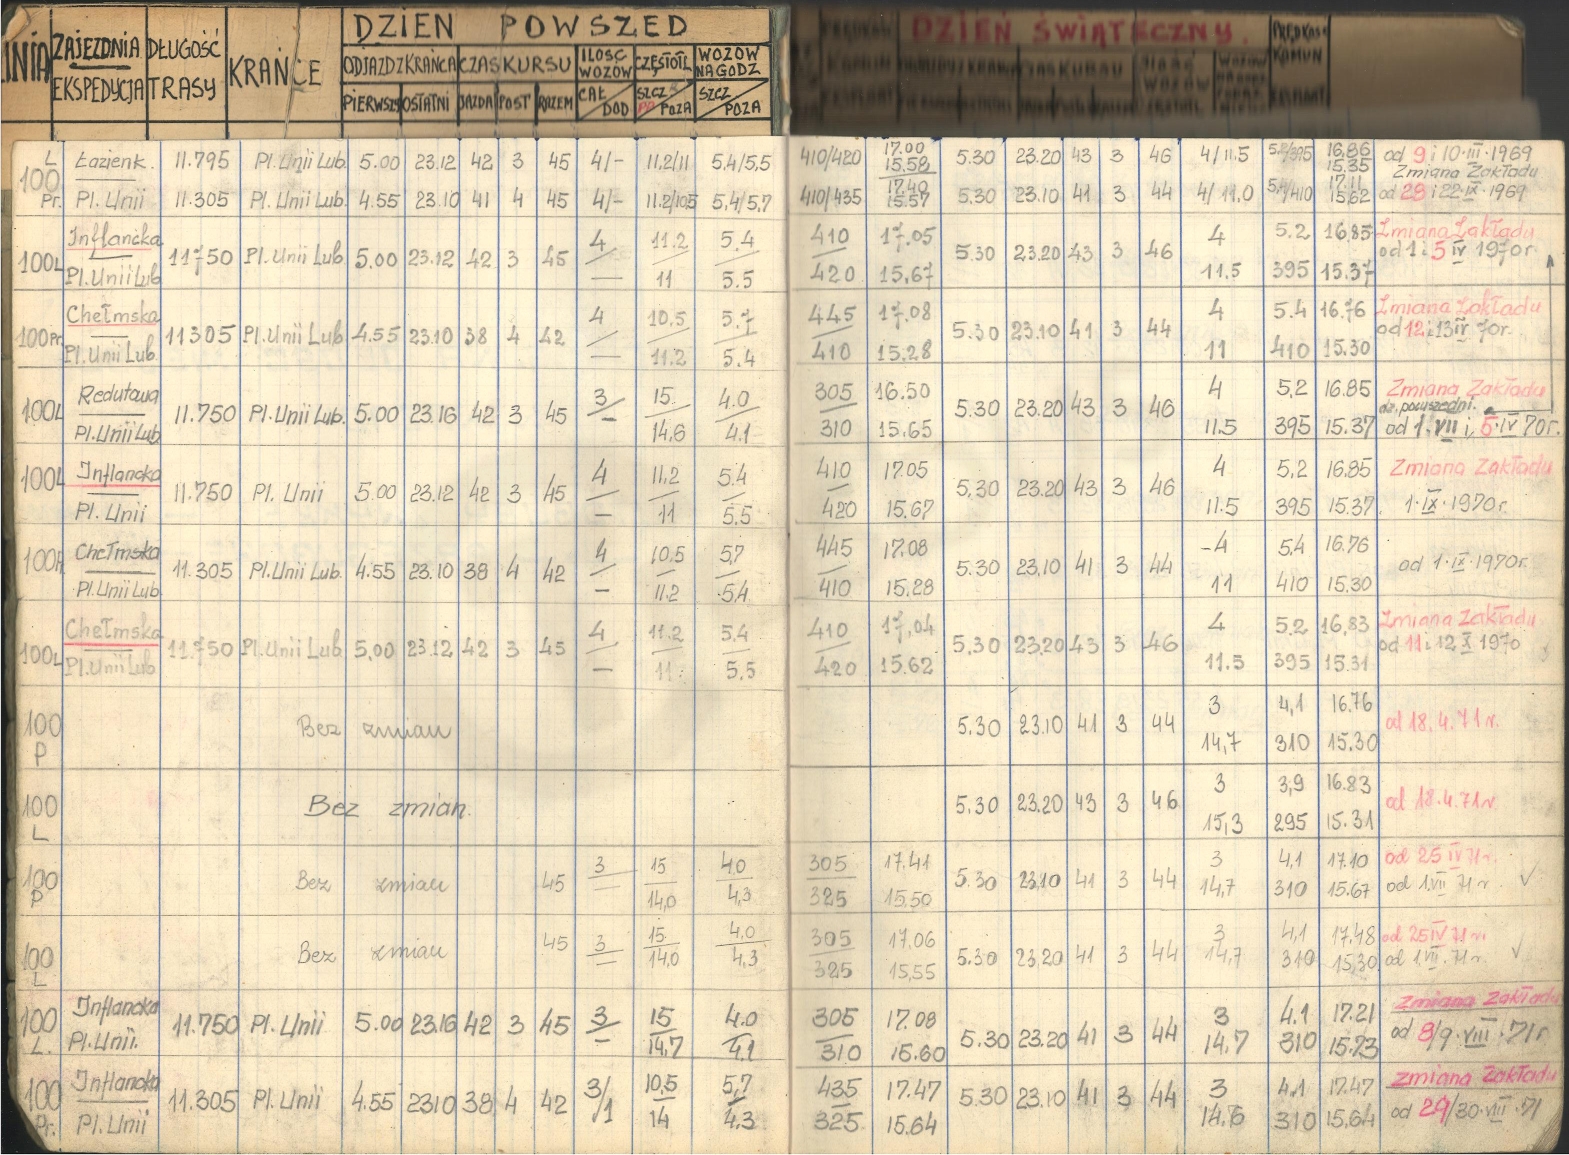 LINIA ZAJEZDNIA EKSPEDYCJA DŁUGOŚĆ TRASY KRAŃCE
DZIEŃ POWSZED
ODJAZD Z KRAŃCA CZAS KURSU ILOŚC WOZÓW CZĘSTOTL. WOZÓW NA GODZ
PIERWSZ OSTATNI JAZDA POST RAZEM CAŁ DOD SZCZ POZA SZCZ POZA
DZIEŃ ŚWIĄTECZNY.
L 100 Łazienk. 11.795 Pl. Unii Lub. 5.00 23.12 42 3 45 4/- 11.2/11 5,4/5,5 410/420 17.00 15.58 5.30 23.20 43 3 46 4/11.5 5.2/395 16.86 15.35 od 9 i 10·III·1969
Zmiana Zakładu
Pr. Pl. Unii 11.305 Pl. Unii Lub. 4.55 23.10 41 4 45 4/- 11.2/10.5 5,4/5,7 410/435 17.40 15.57 5.30 23.10 41 3 44 4/11,0 5,4/410 17.11 15.62 od 28 i 22·IX·1969
100L Inflancka 11750 Pl. Unii Lub. 5.00 23.12 42 3 45 4 11.2 5.4 410 17.05 5.30 23.20 43 3 46 4 5.2 16,85 Zmiana Zakładu
od 1 i 5 IV 1970r.
Pl. Unii Lub — 11 5.5 420 15,67 11.5 395 15.37
100Pr. Chełmska 11305 Pl. Unii Lub. 4.55 23.10 38 4 42 4 10.5 5.7 445 17.08 5.30 23.10 41 3 44 4 5.4 16.76 Zmiana Zakładu
od 12 i 13 IV 70r.
Pl. Unii Lub. — 11.2 5.4 410 15.28 11 410 15.30
100L Redutowa 11.750 Pl. Unii Lub. 5.00 23.16 42 3 45 3 15 4.0 305 16.50 5.30 23.20 43 3 46 4 5,2 16.85 Zmiana Zakładu
dz. powszedni.
Pl. Unii Lub — 14,6 4.1 310 15.65 11.5 395 15.37 od 1. VII i 5·IV 70r.
100L Inflancka 11.750 Pl. Unii 5.00 23.12 42 3 45 4 11.2 5.4 410 17.05 5,30 23.20 43 3 46 4 5,2 16.85 Zmiana Zakładu
Pl. Unii — 11 5.5 420 15.67 11.5 395 15.37 1·IX·1970r.
Chełmska 11.305 Pl. Unii Lub. 4.55 23.10 38 4 42 4 10.5 5,7 445 17.08 5.30 23,10 41 3 44 -4 5,4 16.76 od 1·IX·1970r.
Pl. Unii Lub — 11.2 5.4 410 15.28 11 410 15.30
100L Chełmska 11.750 Pl. Unii Lub 5,00 23.12 42 3 45 4 11.2 5.4 410 17,04 5,30 23,20 43 3 46 4 5.2 16,83 Zmiana Zakładu
od 11 i 12 X 1970
Pl. Unii Lub — 11 5,5 420 15.62 11.5 395 15.31
100 P Bez zmian 5.30 23.10 41 3 44 3 4,1 16.76 od 18.4.71 r.
14,7 310 15.30
100 L Bez zmian. 5.30 23.20 43 3 46 3 3,9 16.83 od 18.4.71r
15,3 295 15.31
100 P Bez zmian 45 3 15 4.0 305 17.41 5.30 23.10 41 3 44 3 4,1 17.10 od 25 IV 71r.
14,0 4,3 325 15.50 14,7 310 15.67 od 1.VII 71 r. ✓
100 L Bez zmian 45 3 15 4.0 305 17,06 5.30 23,20 41 3 44 3 4,1 17,48 od 25 IV 71 r.
14,0 4,3 325 15,55 14,7 310 15,30 od 1.VII.71r. ✓
100 L. Inflancka 11.750 Pl. Unii 5.00 23.16 42 3 45 3 15 4.0 305 17.08 5.30 23.20 41 3 44 3 4.1 17.21 Zmiana Zakładu
Pl. Unii. — 14,7 4.1 310 15.60 14.7 310 15.73 od 8/9·VIII·71r
100 Pr. Inflancka 11.305 Pl. Unii 4.55 2310 38 4 42 3/1 10,5 5,7 435 17.47 5.30 23.10 41 3 44 3 4.1 17.47 Zmiana Zakładu
Pl. Unii 14 4.3 325 15.64 14.6 310 15,64 od 29/30·VIII·71